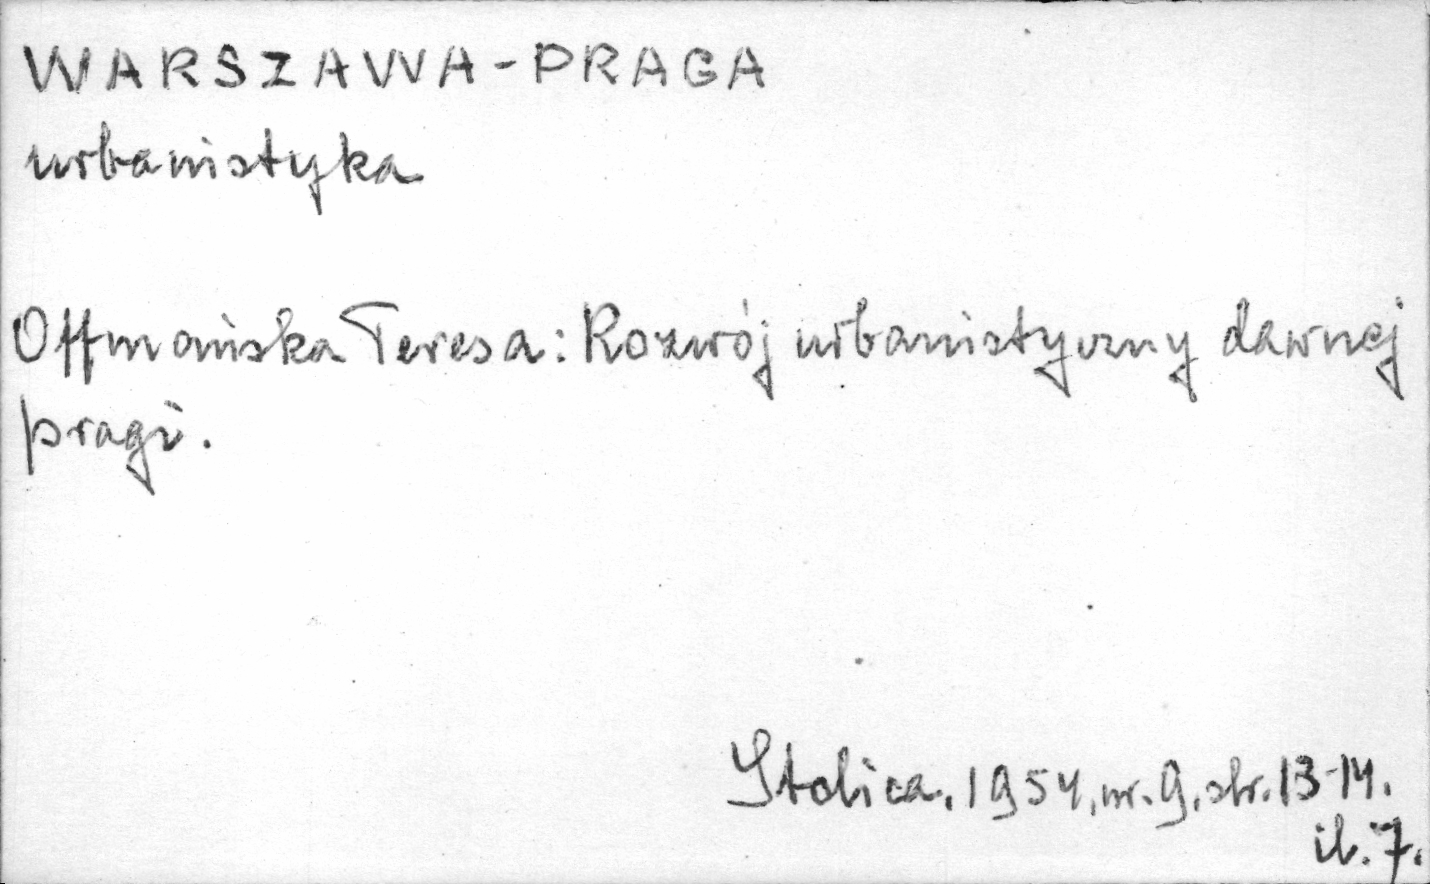 WARSZAWA-PRAGA
urbanistyka
Offmańska Teresa: Rozwój urbanistyczny dawnej
pragi.
Stolica. 1954, nr. 9, str. 13-14.
il. 7.